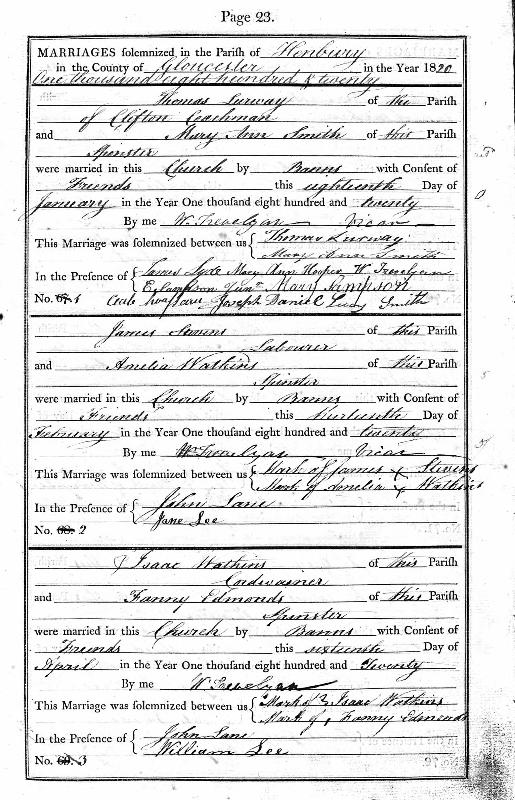 Page 23.
MARRIAGES solemnized in the Parish of Henbury
in the County of Gloucester in the Year 1820
One thousand eight hundred & twenty
Thomas Lurway of the Parish
of Clifton Coachman
and Mary Ann Smith of this Parish
Spinster
were married in this Church by Banns with Consent of
Friends this eighteenth Day of
January in the Year One thousand eight hundred and twenty
By me W. Trevelyan Vicar
This Marriage was solemnized between us { Thomas Lurway
Mary Ann Smith
In the Presence of { James Mary Ann Hooper W Trevelyan
Junr Mary Sampson
No. 67. 1 Joseph Daniel Lucy Smith
James Stevens of this Parish
Labourer
and Amelia Watkins of this Parish
Spinster
were married in this Church by Banns with Consent of
Friends this Day of
February in the Year One thousand eight hundred and twenty
By me W. Trevelyan Vicar
This Marriage was solemnized between us { Mark of James X Stevens
Mark of Amelia X Watkins
In the Presence of { John Lane
Jane Lee
No. 68. 2
Isaac Watkins of this Parish
Cordwainer
and Fanny Edmonds of this Parish
Spinster
were married in this Church by Banns with Consent of
Friends this sixteenth Day of
April in the Year One thousand eight hundred and Twenty
By me W Trevelyan
This Marriage was solemnized between us { Mark of Isaac Watkins
Mark of Fanny Edmonds
In the Presence of { John Lane
William Lee
No. 69. 3